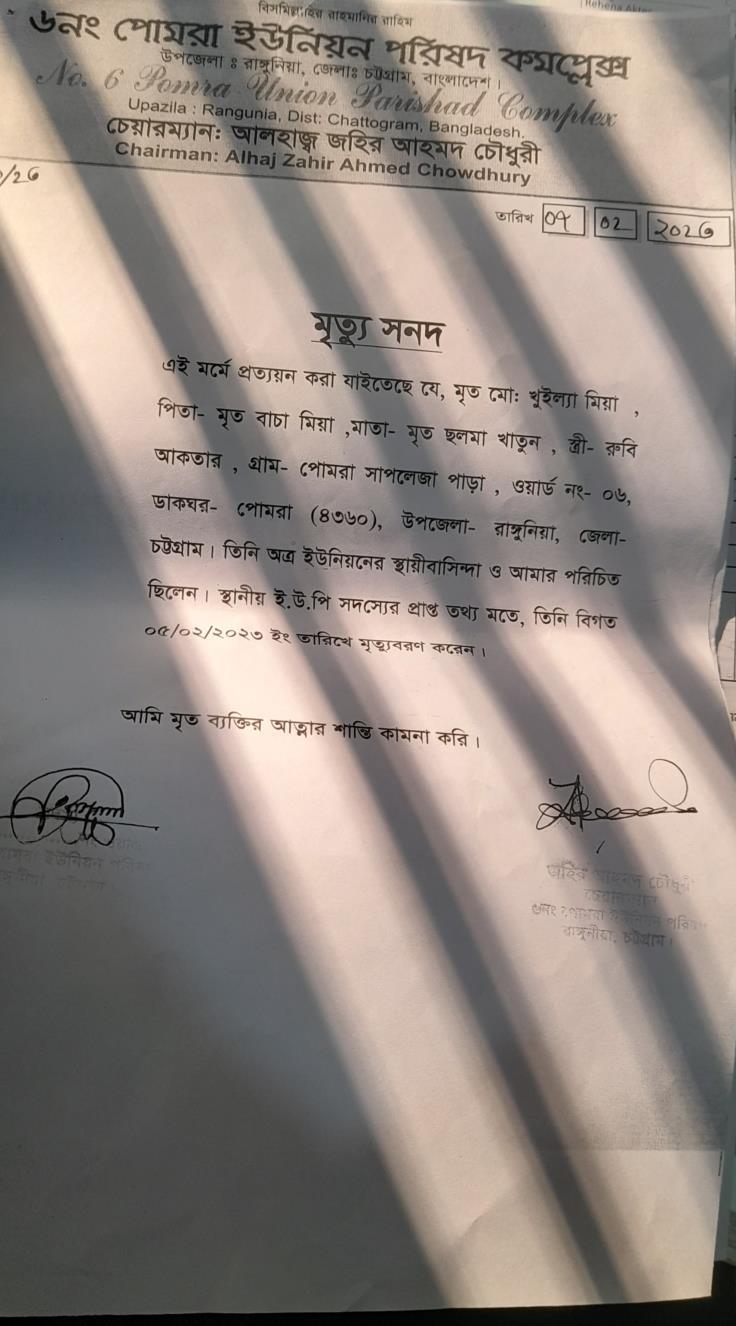 বিসমিল্লাহির রাহমানির রাহিম
Rehena Akter
৬নং পোমরা ইউনিয়ন পরিষদ কমপ্লেক্স
উপজেলা ঃ রাঙ্গুনিয়া, জেলাঃ চট্টগ্রাম, বাংলাদেশ।
No. 6 Pomra Union Parishad Complex
Upazila : Rangunia, Dist: Chattogram, Bangladesh.
চেয়ারম্যান: আলহাজ্ব জহির আহমদ চৌধুরী
Chairman: Alhaj Zahir Ahmed Chowdhury
/২৬
তারিখ ০৭ ০২ ২০২৬
মৃত্যু সনদ
এই মর্মে প্রত্যয়ন করা যাইতেছে যে, মৃত মো: থুইল্যা মিয়া ,
পিতা- মৃত বাচা মিয়া ,মাতা- মৃত ছলমা খাতুন , স্ত্রী- রুবি
আকতার , গ্রাম- পোমরা সাপলেজা পাড়া , ওয়ার্ড নং- ০৬,
ডাকঘর- পোমরা (৪৩৬০), উপজেলা- রাঙ্গুনিয়া, জেলা-
চট্টগ্রাম। তিনি অত্র ইউনিয়নের স্থায়ীবাসিন্দা ও আমার পরিচিত
ছিলেন। স্থানীয় ই.উ.পি সদস্যের প্রাপ্ত তথ্য মতে, তিনি বিগত
০৫/০২/২০২৩ ইং তারিখে মৃত্যুবরণ করেন।
আমি মৃত ব্যক্তির আত্মার শান্তি কামনা করি।
ইউনিয়ন পরিষদ
চট্টগ্রাম।
জহির আহমদ চৌধুরী
চেয়ারম্যান
৬নং পোমরা ইউনিয়ন পরিষদ
রাঙ্গুনীয়া, চট্টগ্রাম।